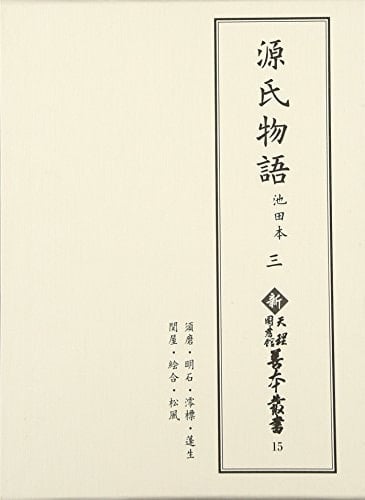 源氏物語 池田本 三
新 天理図書館 善本叢書 15
須磨・明石・澪標・蓬生
関屋・絵合・松風